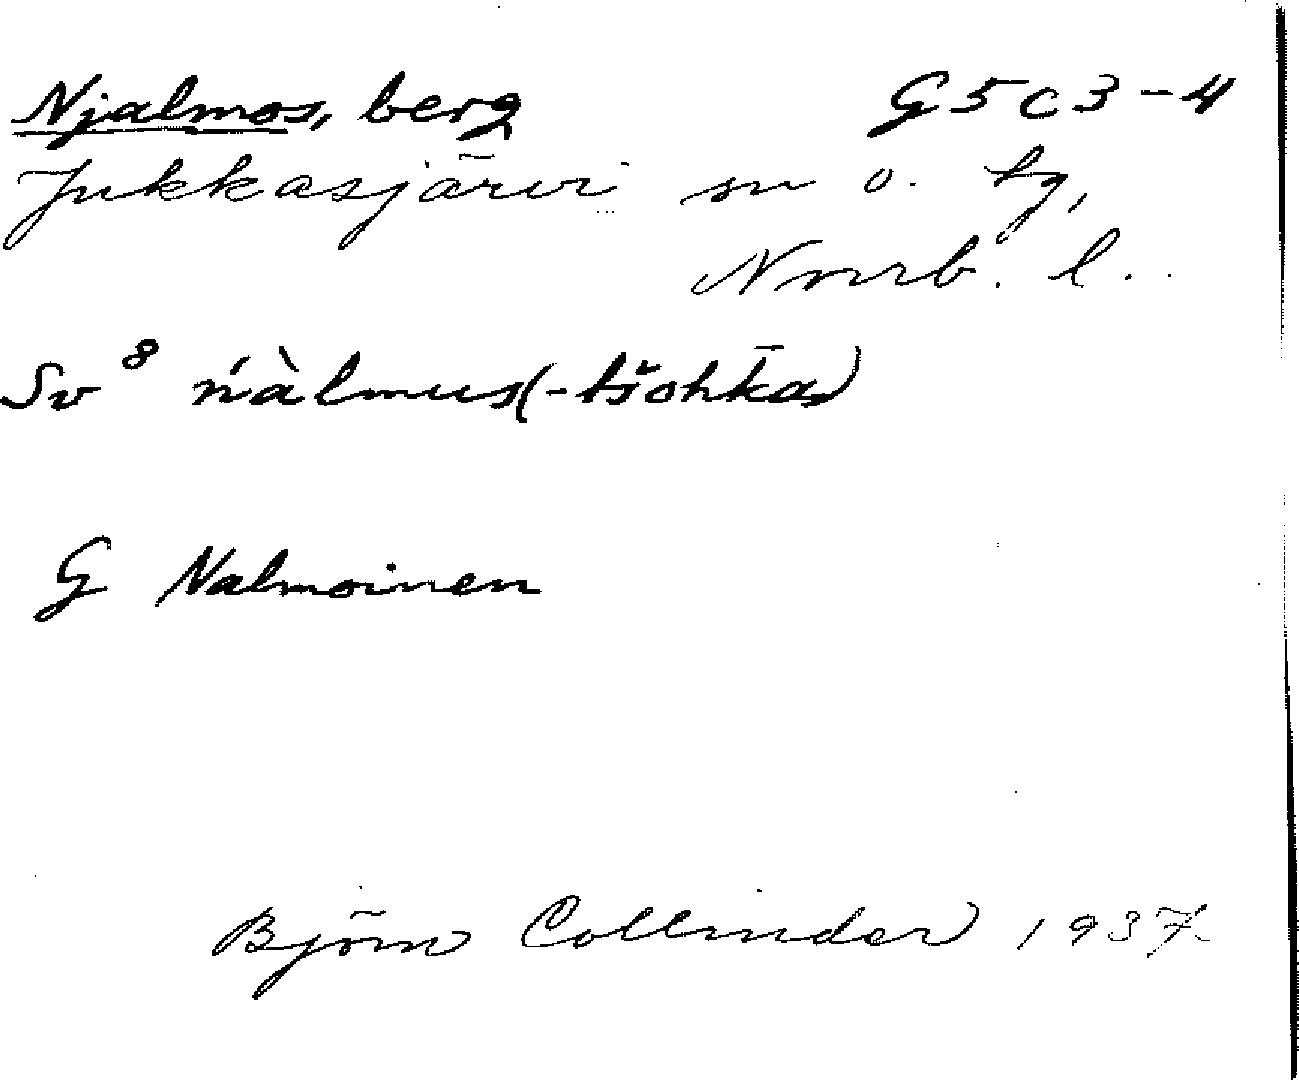 Njalmos, berg G5c3-4
Jukkasjärvi sn o. tg,
Norrb. l.
Sv⁸ ńàlmus(-tšohka)
G Nalmoinen
Björn Collinder 1937